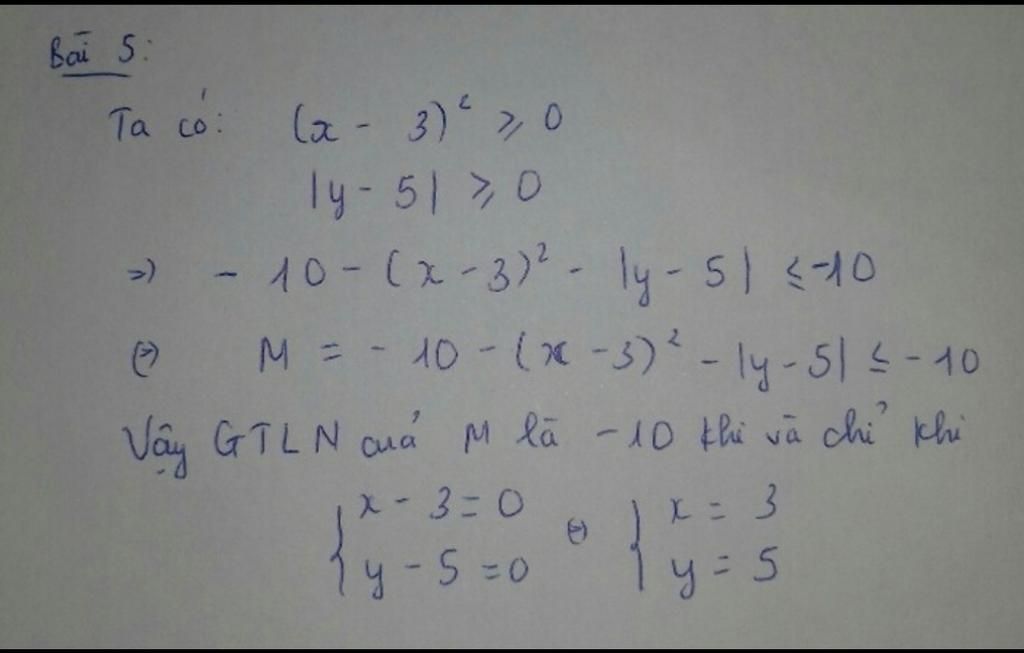 Bài 5:
Ta có: (x - 3)² ⩾ 0
|y - 5| ⩾ 0
=) - 10 - (x - 3)² - |y - 5| ≤ -10
(=) M = - 10 - (x - 3)² - |y - 5| ≤ - 10
Vậy GTLN của M là -10 khi và chỉ khi
{ x - 3 = 0 (=) { x = 3
{ y - 5 = 0 { y = 5